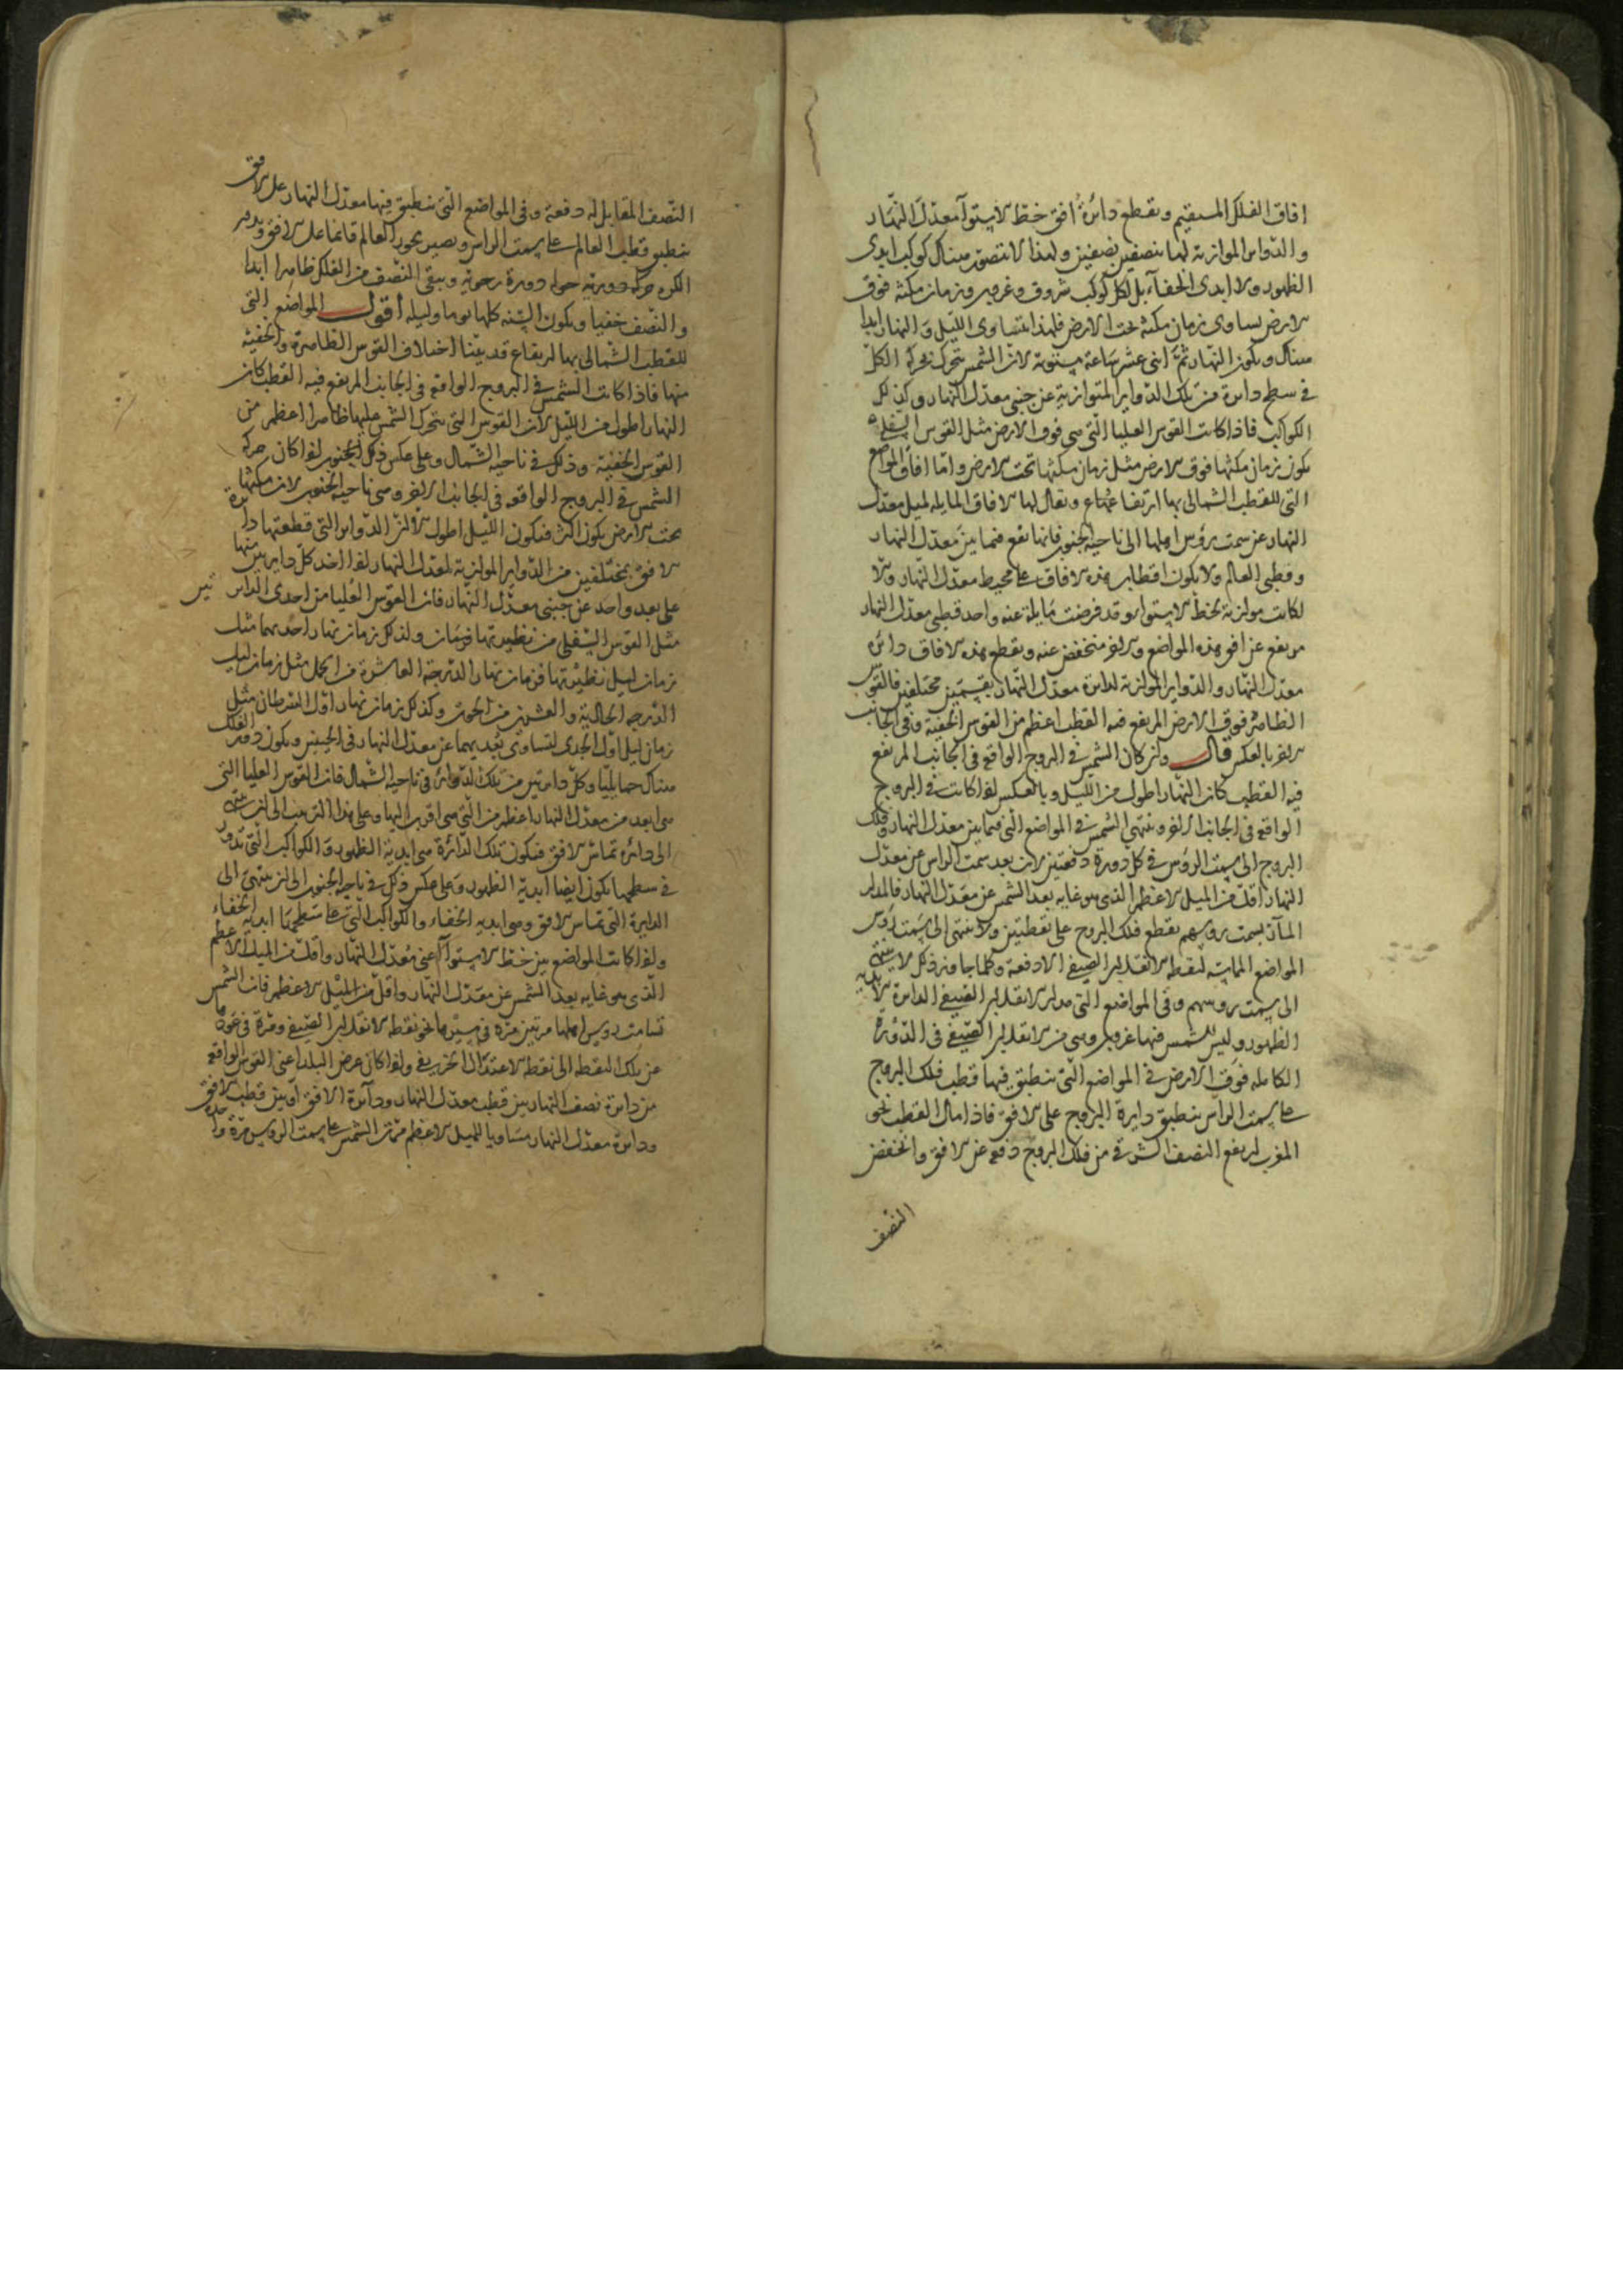 افاق الفلك المستقيم وتقطع دائرة افق خط الاستوآ معدل النهار
والدواير الموازية لها بنصفين نصفين ولهذا لا نتصور هناك كوكب ابدى
الظهور ولا ابدى الخفآء بل لكل كوكب شروق وغروب وزمان مكثه فوق
الارض يساوى زمان مكثه تحت الارض فلهذا يتساوى الليل والنهار ابدا
هناك ويكون النهار ثمة اثنى عشر ساعة مستوية لان الشمس تتحرك بحركة الكل
فى سطح دايرة من تلك الدواير المتوازية عن جنبى معدل النهار وكذلك
الكواكب فاذا كانت القوس العليا التى هى فوق الارض مثل القوس السفلى
يكون زمان مكثها فوق الارض مثل زمان مكثها تحت الارض واما افاق المواضع
التى للقطب الشمالى بها ارتفاع ويقال لها الافاق المايله لميل معدل
النهار عن سمت رؤس اهلها الى ناحية الجنوب فانها تقع فيما بين معدل النهار
وقطبى العالم ولا يكون اقطاب هذه الافاق على محيط معدل النهار والا
لكانت موازية لخط الاستوا وقد فرضت مايلة عنه واحد قطبى معدل النهار
مرتفع عن افق هذه المواضع والاخر منخفض عنه وتقطع هذه الافاق دائرة
معدل النهار والدواير الموازية لدايرة معدل النهار بقسمين مختلفين فالقوس
الظاهرة فوق الارض المرتفع فيه القطب اعظم من القوس الخفية وفى الجانب
الاخر بالعكس قال وان كان الشمس فى البروج الواقع فى الجانب المرتفع
فيه القطب كان النهار اطول من الليل وبالعكس اذا كانت فى البروج
الواقع فى الجانب الاخر وينتهى الشمس فى المواضع التى فيما بين معدل النهار وفلك
البروج الى سمت الروس فى كل دورة دفعتين لان بعد سمت الراس عن معدل
النهار اقل من الميل الاعظم الذى هو غايه بعد الشمس عن معدل النهار فالمدار
المآر بسمت رؤسهم يقطع فلك البروج على نقطتين ولا ينتهى الى سمت رؤس
المواضع المسامتة لنقطة الانقلاب الصيفى الا دفعة وكلما جاوز ذلك لا ينتهى
الى سمت روسهم وفى المواضع التى مدار الانقلاب الصيفى الدايرة الابدية
الظهور وليس للشمس فيها غروب وهى فى الانقلاب الصيفى فى الدورة
الكامله فوق الارض فى المواضع التى ينطبق فيها قطب فلك البروج
على سمت الراس ينطبق دايرة البروج على الافق فاذا مال القطب نحو
المغرب ارتفع النصف الشرقى من فلك البروج دفعة عن الافق وانخفض
النصف
النصف المقابل له دفعة وفى المواضع التى ينطبق فيها معدل النهار على الافق
ينطبق قطب العالم على سمت الراس ويصير محور العالم قائما على الافق ويدور
الكرة حركة دورية حوله دورة رحوية ويبقى النصف من الفلك ظاهرا ابدا
والنصف خفيا ويكون السنه كلها يوما وليله اقول المواضع التى
للقطب الشمالى بها ارتفاع قد بينا اختلاف القوس الظاهرة والخفية
منها فاذا كانت الشمس فى البروج الواقع فى الجانب المرتفع فيه القطب كان
النهار اطول من الليل لان القوس التى تتحرك الشمس عليها ظاهرا اعظم من
القوس الخفية وذلك فى ناحية الشمال وعلى عكس ذلك الجنوب اذا كان حركة
الشمس فى البروج الواقعه فى الجانب الاخر وهى ناحية الجنوب لان مكثها
تحت الارض يكون اكثر فيكون الليل اطول ثم ان الدواير التى قطعتها دايرة
الافق بمختلفين من الدواير الموازية لمعدل النهار اذا اخذ كل دايرتين منها
على بعد واحد عن جنبى معدل النهار فان القوس العليا من احدى الدايرتين
مثل القوس السفلى من نظيرتها فيهان ولذلك زمان نهار احديهما مثل
زمان ليل نظيرتها فزمان نهار الدرجة العاشرة من الحمل مثل زمان ليل
الدرجه الحادية والعشرين من الحوت وكذلك زمان نهار اول السرطان مثل
زمان ليل اول الجدى لتساوى بعديهما عن معدل النهار فى الجهتين ويكون دور الفلك
هناك حمايليا وكل دايرتين من تلك الدوائر فى ناحية الشمال فان القوس العليا التى
هى ابعد من معدل النهار اعظم من التى هى اقرب اليها وعلى هذا الترتيب الى ان ينتهى
الى دائرة تماس الافق فيكون تلك الدائرة هى ابدية الظهور والكواكب التى تدور
فى سطحها يكون ايضا ابدية الظهور وعلى عكس ذلك فى ناحية الجنوب الى ان ينتهى الى
الدايرة التى تماس الافق وهى ابدية الخفاء والكواكب التى على سطحها ابدية الخفاء
واذا كانت المواضع بين خط الاستوآ اعنى معدل النهار واقل من الميل الاعظم
الذى هو غايه بعد الشمس عن معدل النهار واقل من الميل الاعظم فان الشمس
تسامت رؤس اهلها مرتين مرة فى مسيرها نحو نقطة الانقلاب الصيفى ومرة فى عودها
عن تلك النقطه الى نقطة الاعتدال الخريفى واذا كان عرض البلد اعنى القوس الواقع
من دائرة نصف النهار بين قطب معدل النهار ودآئرة الافق او بين قطب الافق
ودائرة معدل النهار مساويا للميل الاعظم مرت الشمس على سمت الروس مرة واحدة